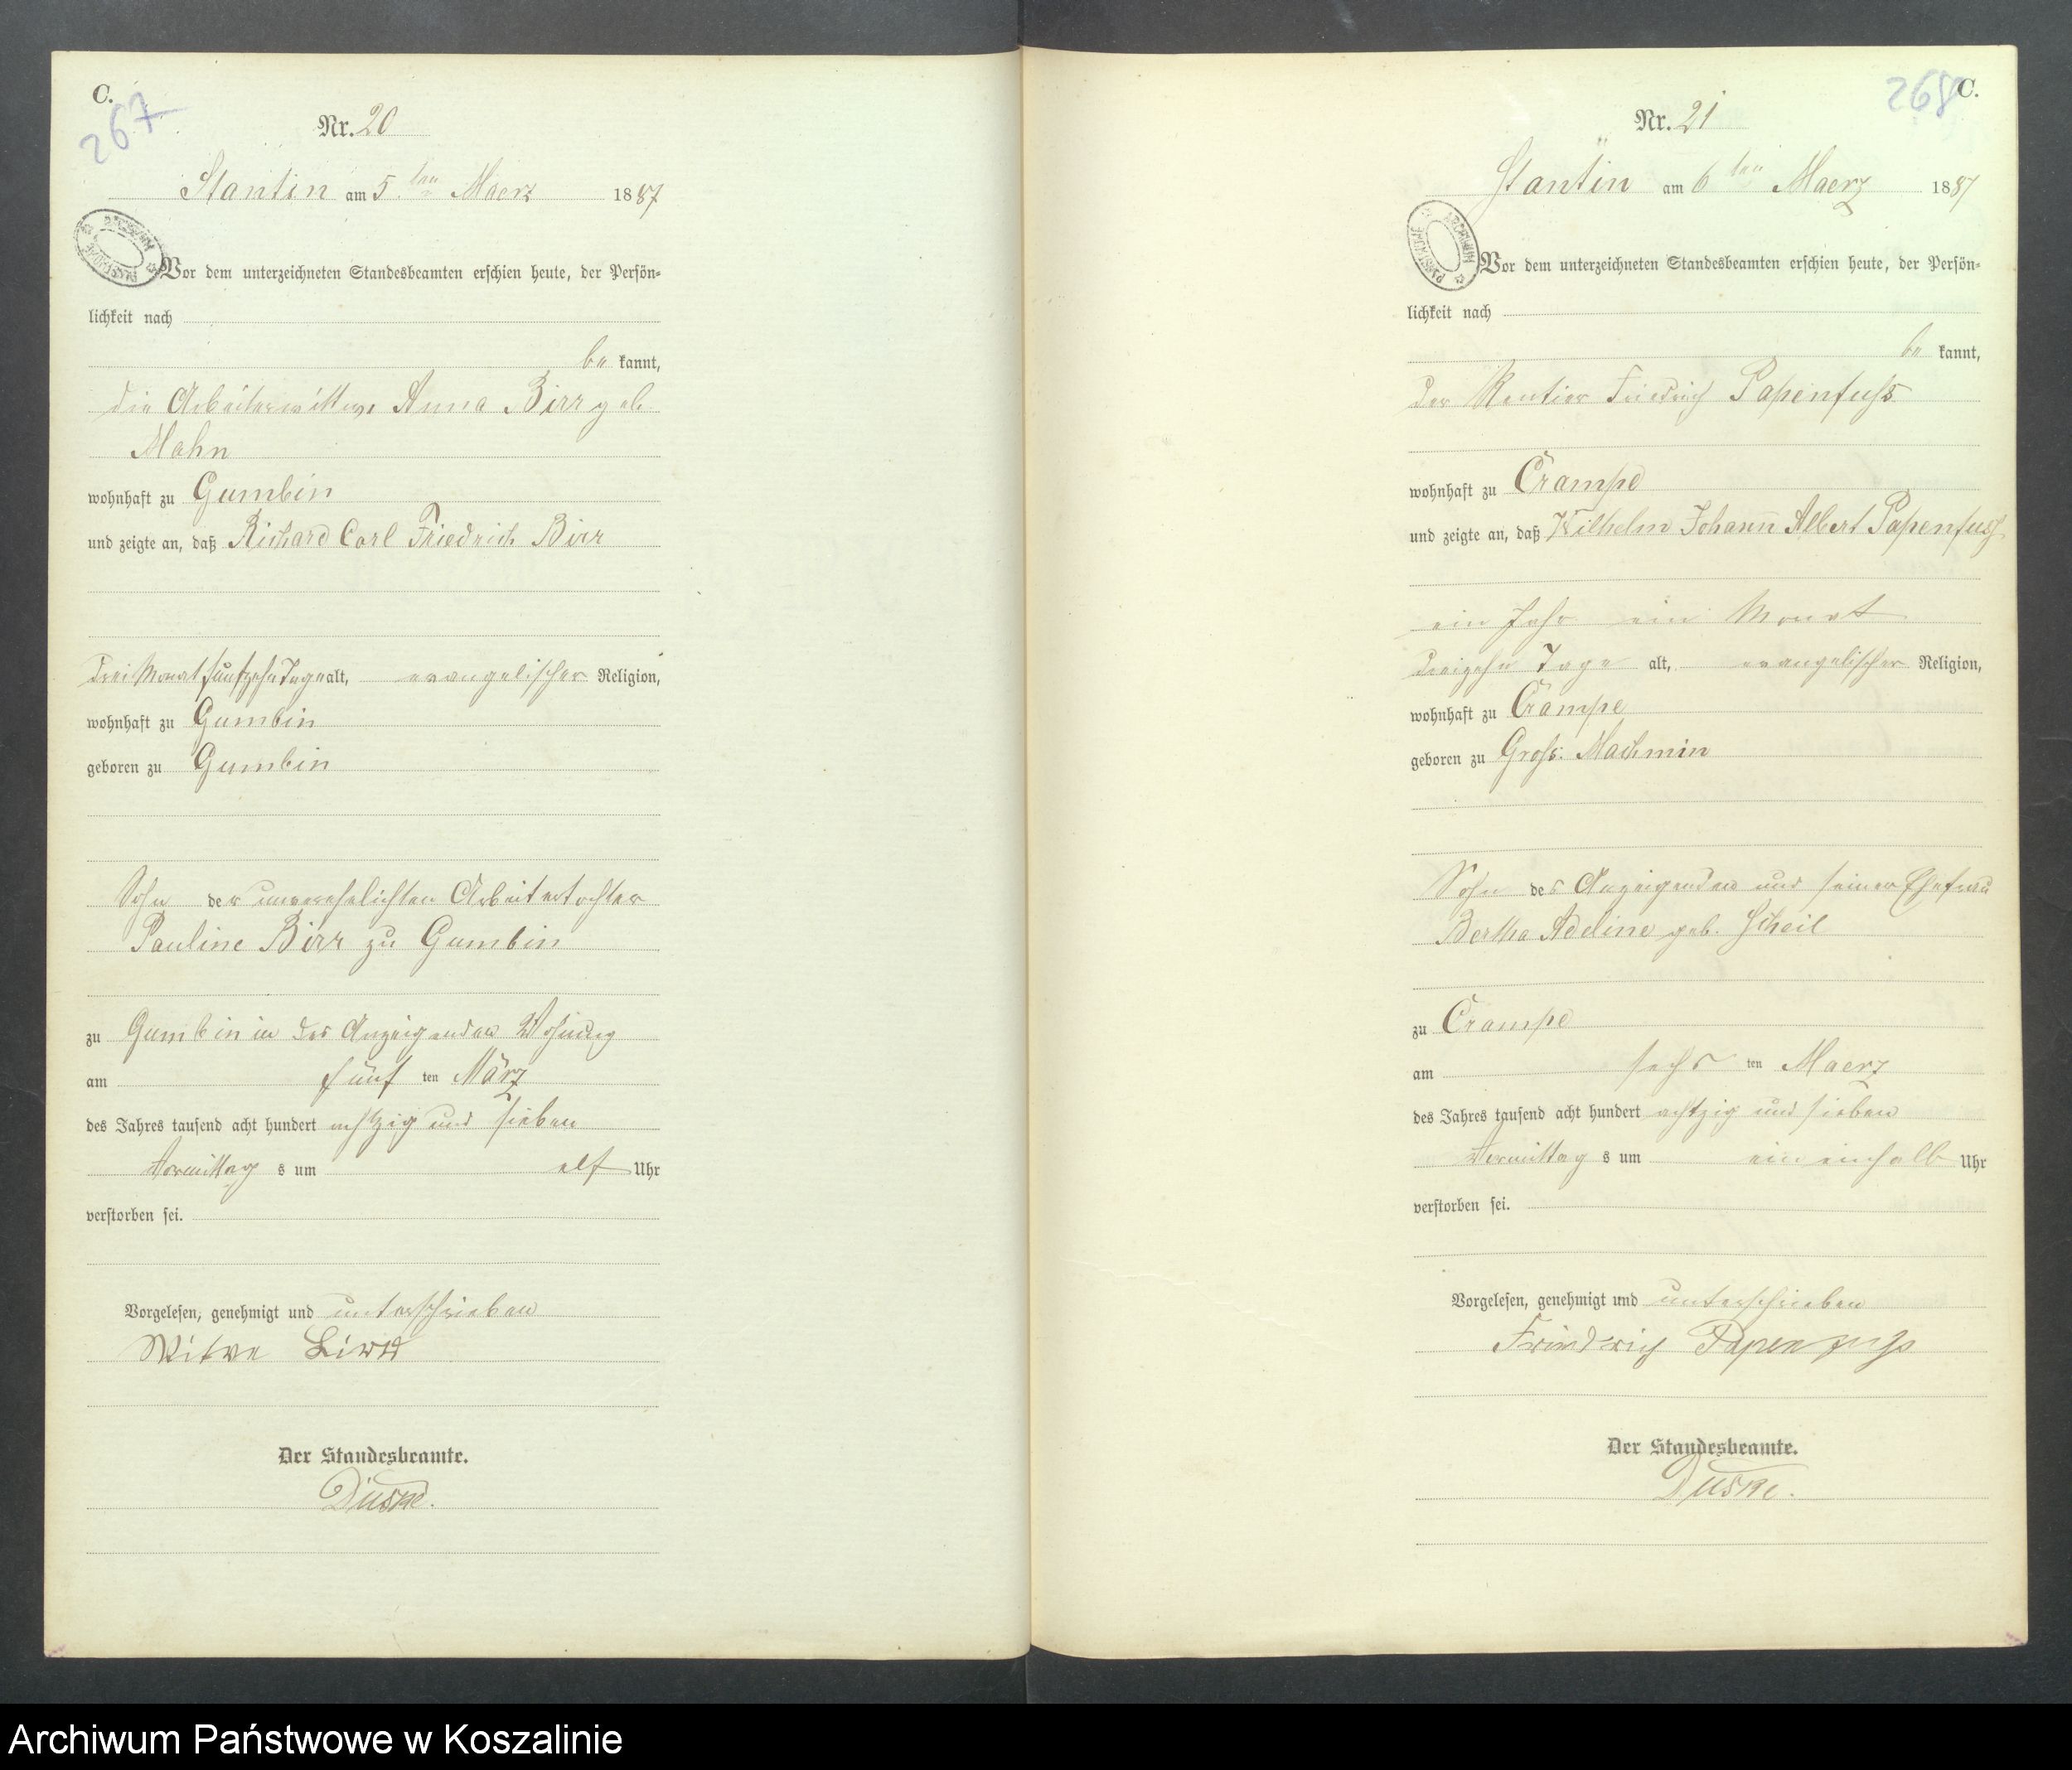 C.
267
Nr. 20
Stantin am 5ten Maerz 1887
ARCHIWUM PAŃSTWOWE
Vor dem unterzeichneten Standesbeamten erschien heute, der Persön-
lichkeit nach
be kannt,
die Arbeiterwittwe Anna Birr geb.
Mahn
wohnhaft zu Gumbin
und zeigte an, daß Richard Carl Friedrich Birr
drei Monat fünfzehn Tage alt, evangelischer Religion,
wohnhaft zu Gumbin
geboren zu Gumbin
Sohn der unverehelichten Arbeitertochter
Pauline Birr zu Gumbin
zu Gumbin in der Anzeigenden Wohnung
am fünf ten März
des Jahres tausend acht hundert achtzig und sieben
Vormittag s um elf Uhr
verstorben sei.
Vorgelesen, genehmigt und unterschrieben
Witwe
Der Standesbeamte.
Düske.
C.
268
Nr. 21
Stantin am 6ten Maerz 1887
ARCHIWUM PAŃSTWOWE
Vor dem unterzeichneten Standesbeamten erschien heute, der Persön-
lichkeit nach
be kannt,
der Rentier Friedrich Papenfuß
wohnhaft zu Crampe
und zeigte an, daß Wilhelm Johann Albert Papenfuß
ein Jahr ein Monat
dreizehn Tage alt, evangelischer Religion,
wohnhaft zu Crampe
geboren zu Groß. Machmin
Sohn des Anzeigenden und seiner Ehefrau
Bertha Adeline geb. Scheil
zu Crampe
am sechs ten Maerz
des Jahres tausend acht hundert achtzig und sieben
Vormittag s um ein einhalb Uhr
verstorben sei.
Vorgelesen, genehmigt und unterschrieben
Friedrich Papenfuß
Der Standesbeamte.
Düske.
Archiwum Państwowe w Koszalinie